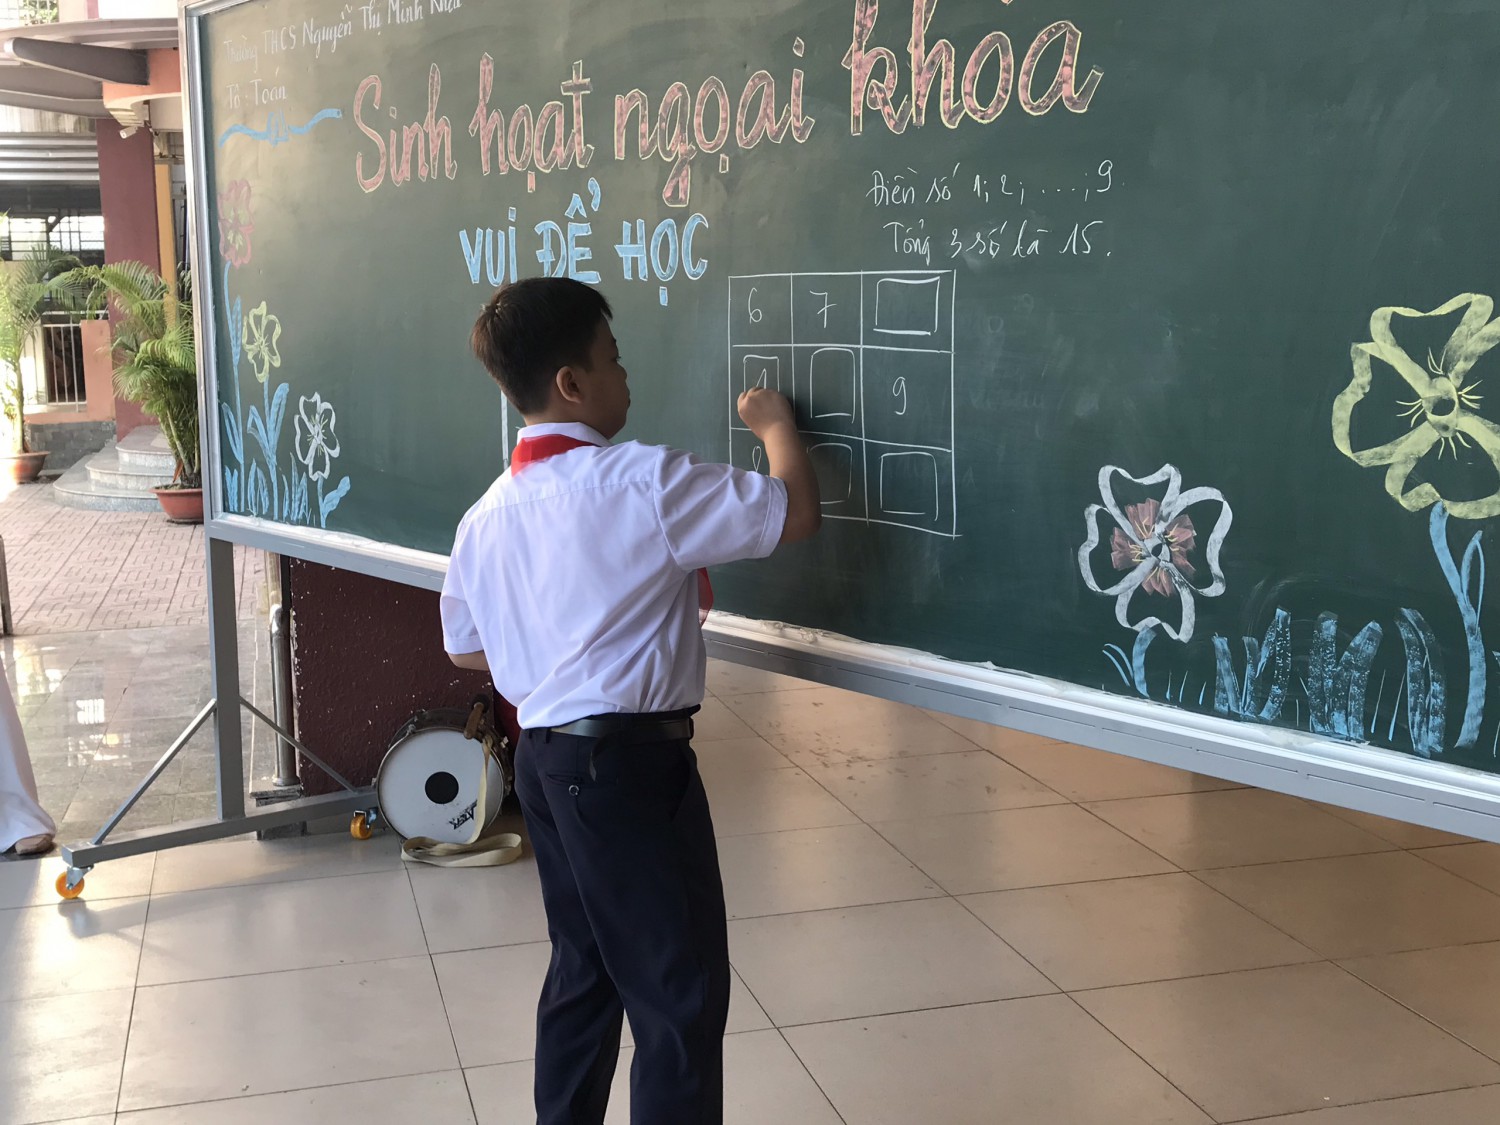 Trường THCS Nguyễn Thị Minh Khai
Tổ : Toán
Sinh hoạt ngoại khóa
VUI ĐỂ HỌC
Điền số 1; 2; ....; 9.
Tổng 3 số là 15.
6 7
1 9
8